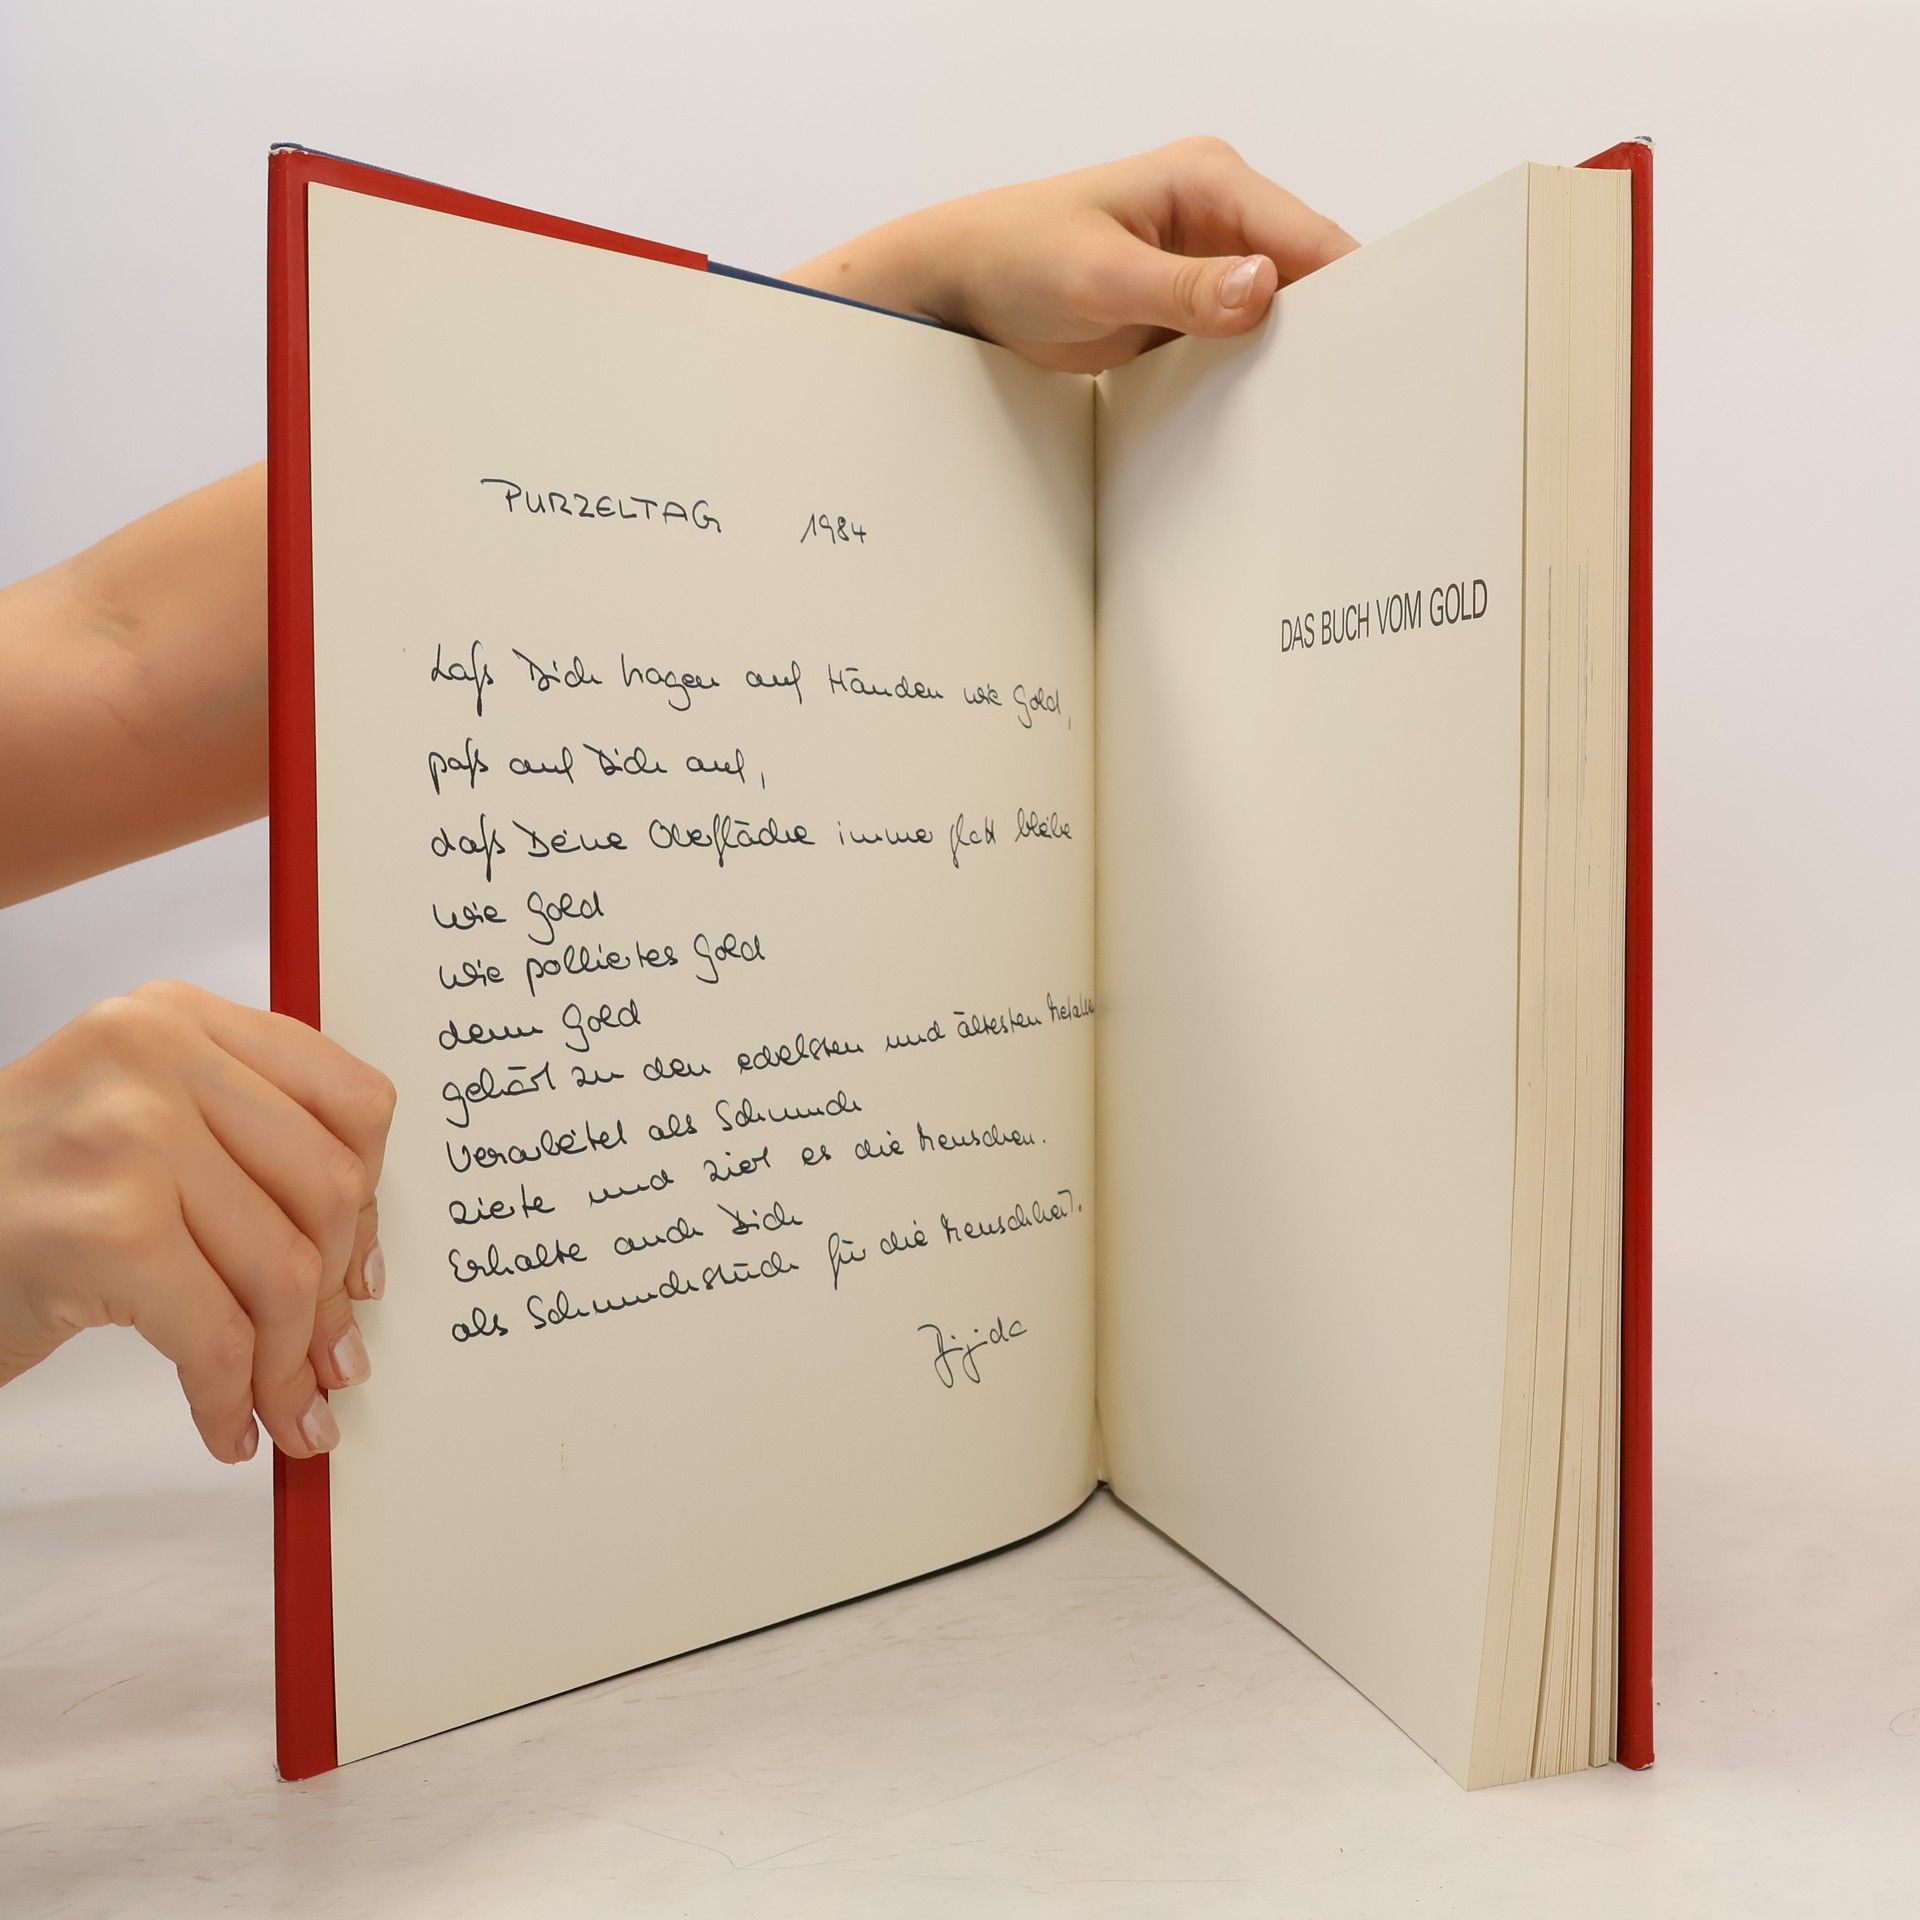 PURZELTAG 1984
Laß Dich tragen auf Händen wie Gold,
paß auf Dich auf,
daß Deine Oberfläche immer glatt bleibe
wie Gold
wie polliertes Gold
denn Gold
gehört zu den edelsten und ältesten Metallen
Verarbeitet als Schmuck
zierte und ziert es die Menschen.
Erhalte auch Dich
als Schmuckstück für die Menschheit.
DAS BUCH VOM GOLD